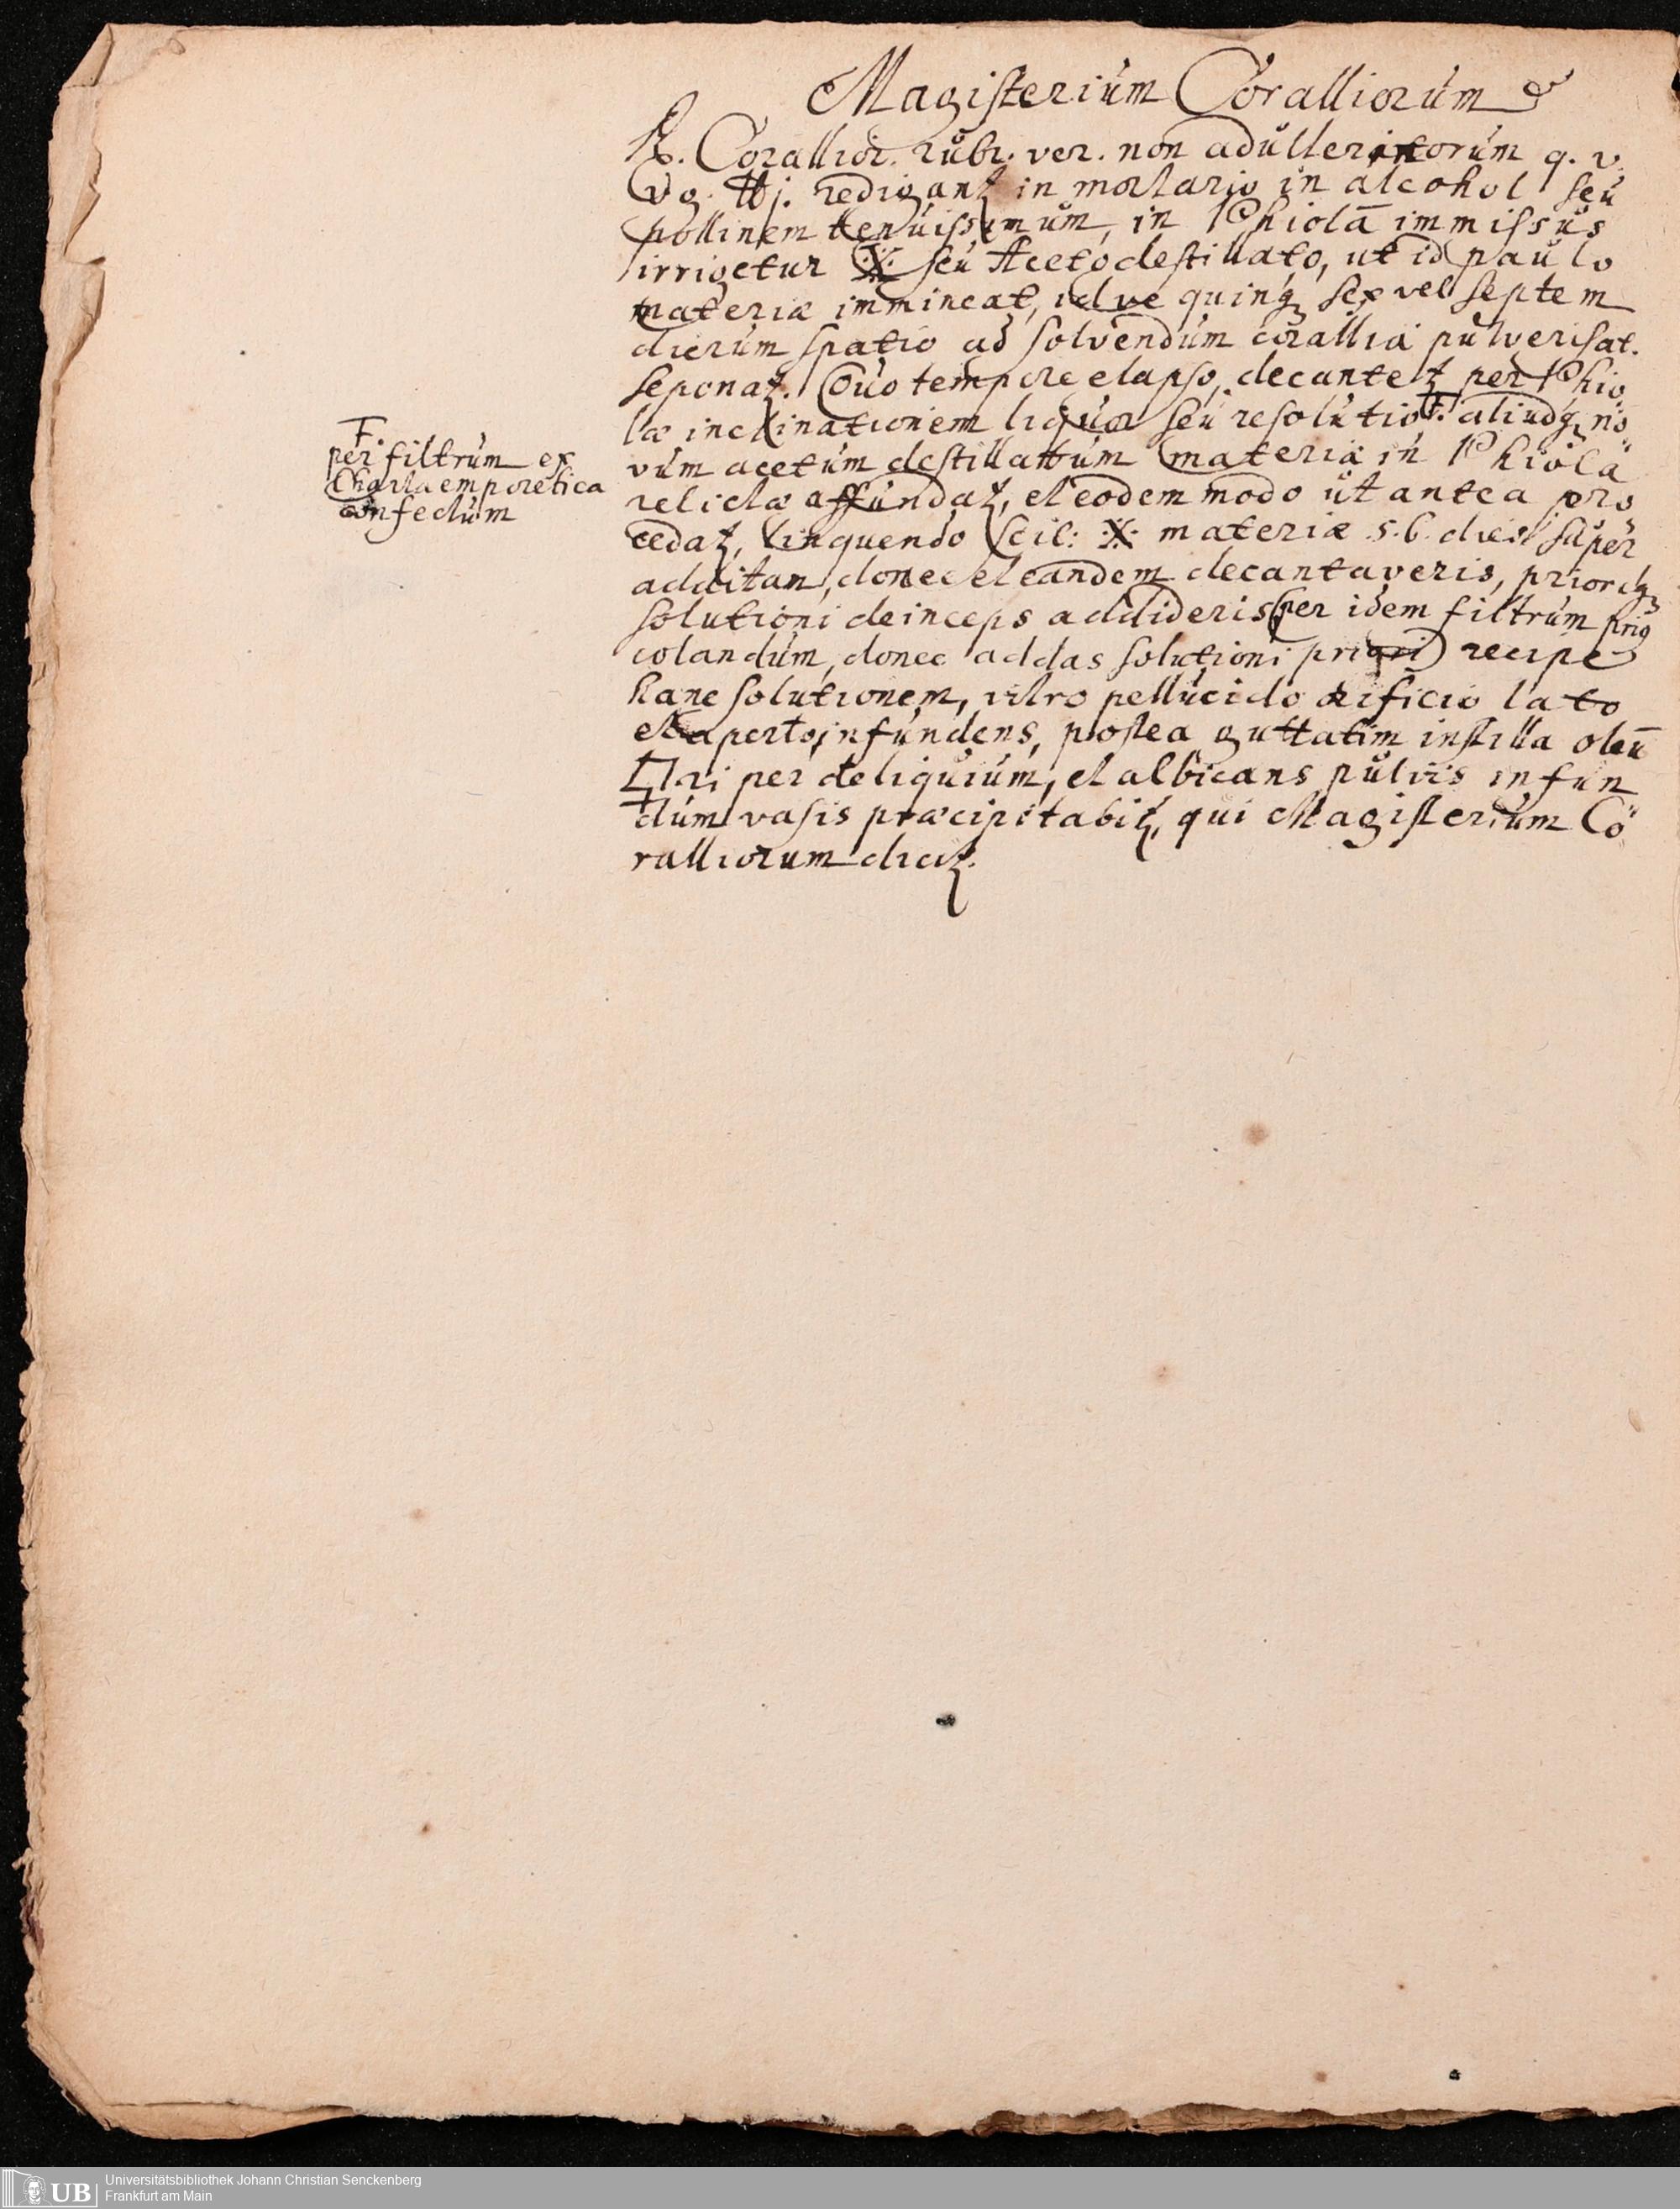 Magisterium Coralliorum
℞. Corallior. rubr. ver. non adulteratorum q. v.
Vg. ℔j. redigantꝫ in mortario in alcohol seu
pollinem tenuissimum, in Phiolā immissus
irrigetur ·X· seu Aceto destillato, ut id paulo
materiæ immineat, idve quinqꝫ sex vel septem
dierum spatio ad solvendum corallia pulverisat.
seponatꝫ. Quo tempore elapso, decantetꝫ per Phio
læ inclinationem liquor seu resolutio F. aliudqꝫ no
vum acetum destillatum materiæ in Phiola
relictæ affundatꝫ, et eodem modo ut antea pro
cedatꝫ, linquendo scil: ·X· materiæ 5. 6. dies super
additam, donec et eandem decantaveris, priorqꝫ
solutioni deinceps addideris per idem filtrum priꝰ
colandum, donec addas solutioni priori recipe
hanc solutionem, vitro pellucido orificio lato
et aperto infundens, postea guttatim instilla oleū
🜿ri per deliquium, et albicans pulvis in fun
dum vasis præcipitabitꝫ, qui Magisterium Co
ralliorum dicitꝫ.
F.
per filtrum ex
Charta emporetica
confectum
UB
Universitätsbibliothek Johann Christian Senckenberg
Frankfurt am Main